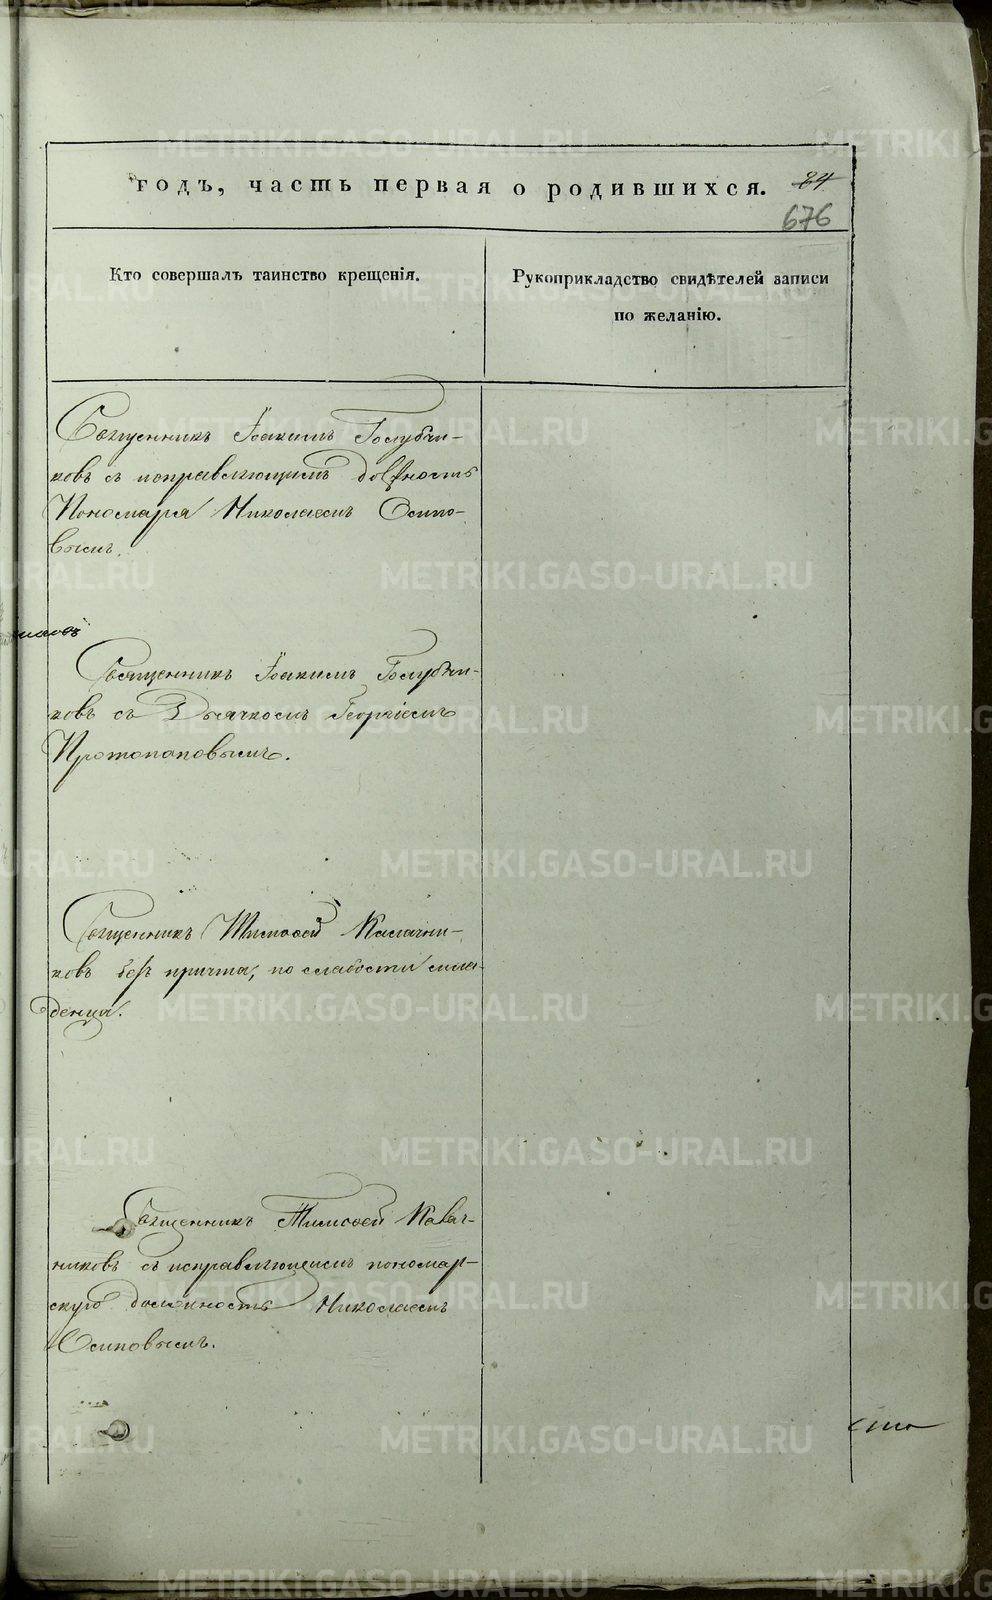 годъ, часть первая о родившихся.
84
676
Кто совершалъ таинство крещенія.
Рукоприкладство свидѣтелей записи
по желанію.
Священникъ Іоакимъ Голубчи-
ковъ съ исправляющимъ должность
Пономаря Николаемъ Осипо-
вымъ.
Священникъ Іоакимъ Голубчи-
ковъ съ Дьячкомъ Георгіемъ
Протопоповымъ.
Священникъ Тимофей Калачни-
ковъ безъ причта, по слабости мла-
денца.
Священникъ Тимофей Калач-
никовъ съ исправляющимъ пономар-
скую должность Николаемъ
Осиповымъ.
METRIKI.GASO-URAL.RU